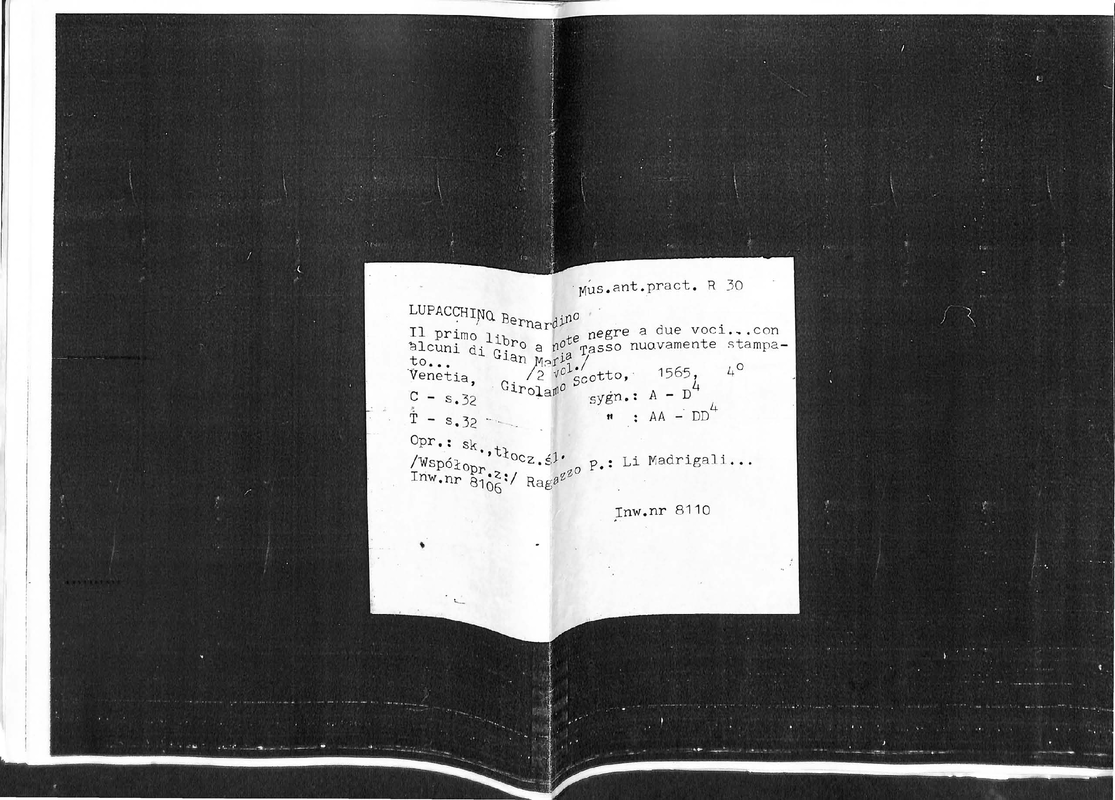 Mus.ant.pract. R 30
LUPACCHINO Bernardino
Il primo libro a note negre a due voci...con
alcuni di Gian Maria Tasso nuovamente stampa-
to... /2 vol./
Venetia, Girolamo Scotto, 1565, 4°
C - s.32 sygn.: A - D⁴
T - s.32 " : AA - DD⁴
Opr.: sk.,tłocz.śl.
/Współopr.z:/ Ragazzo P.: Li Madrigali...
Inw.nr 8106
Inw.nr 8110